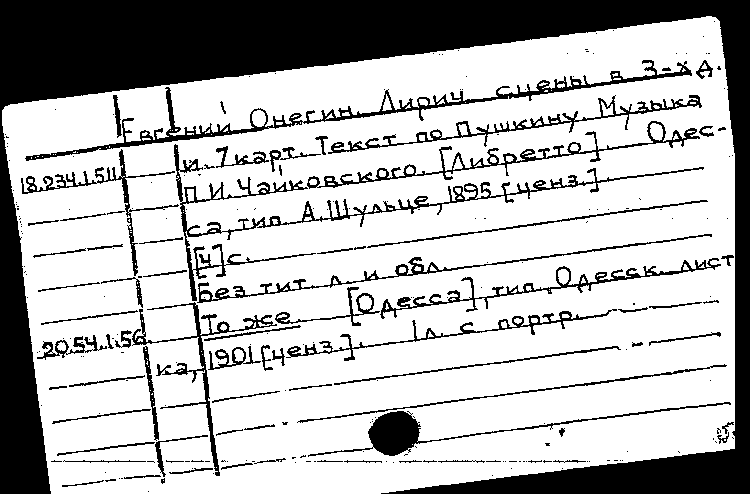 Евгений Онегин. Лирич. сцены в 3-х д.
и 7 карт. Текст по Пушкину. Музыка
18.234.1.511. П.И. Чайковского. [Либретто]. Одес-
са, тип. А. Шульце, 1895 [ценз.].
[4] с.
Без тит. л. и обл.
20.54.1.56. То же. [Одесса], тип. Одесск. лист
ка, 1901 [ценз.]. 1 л. с портр.